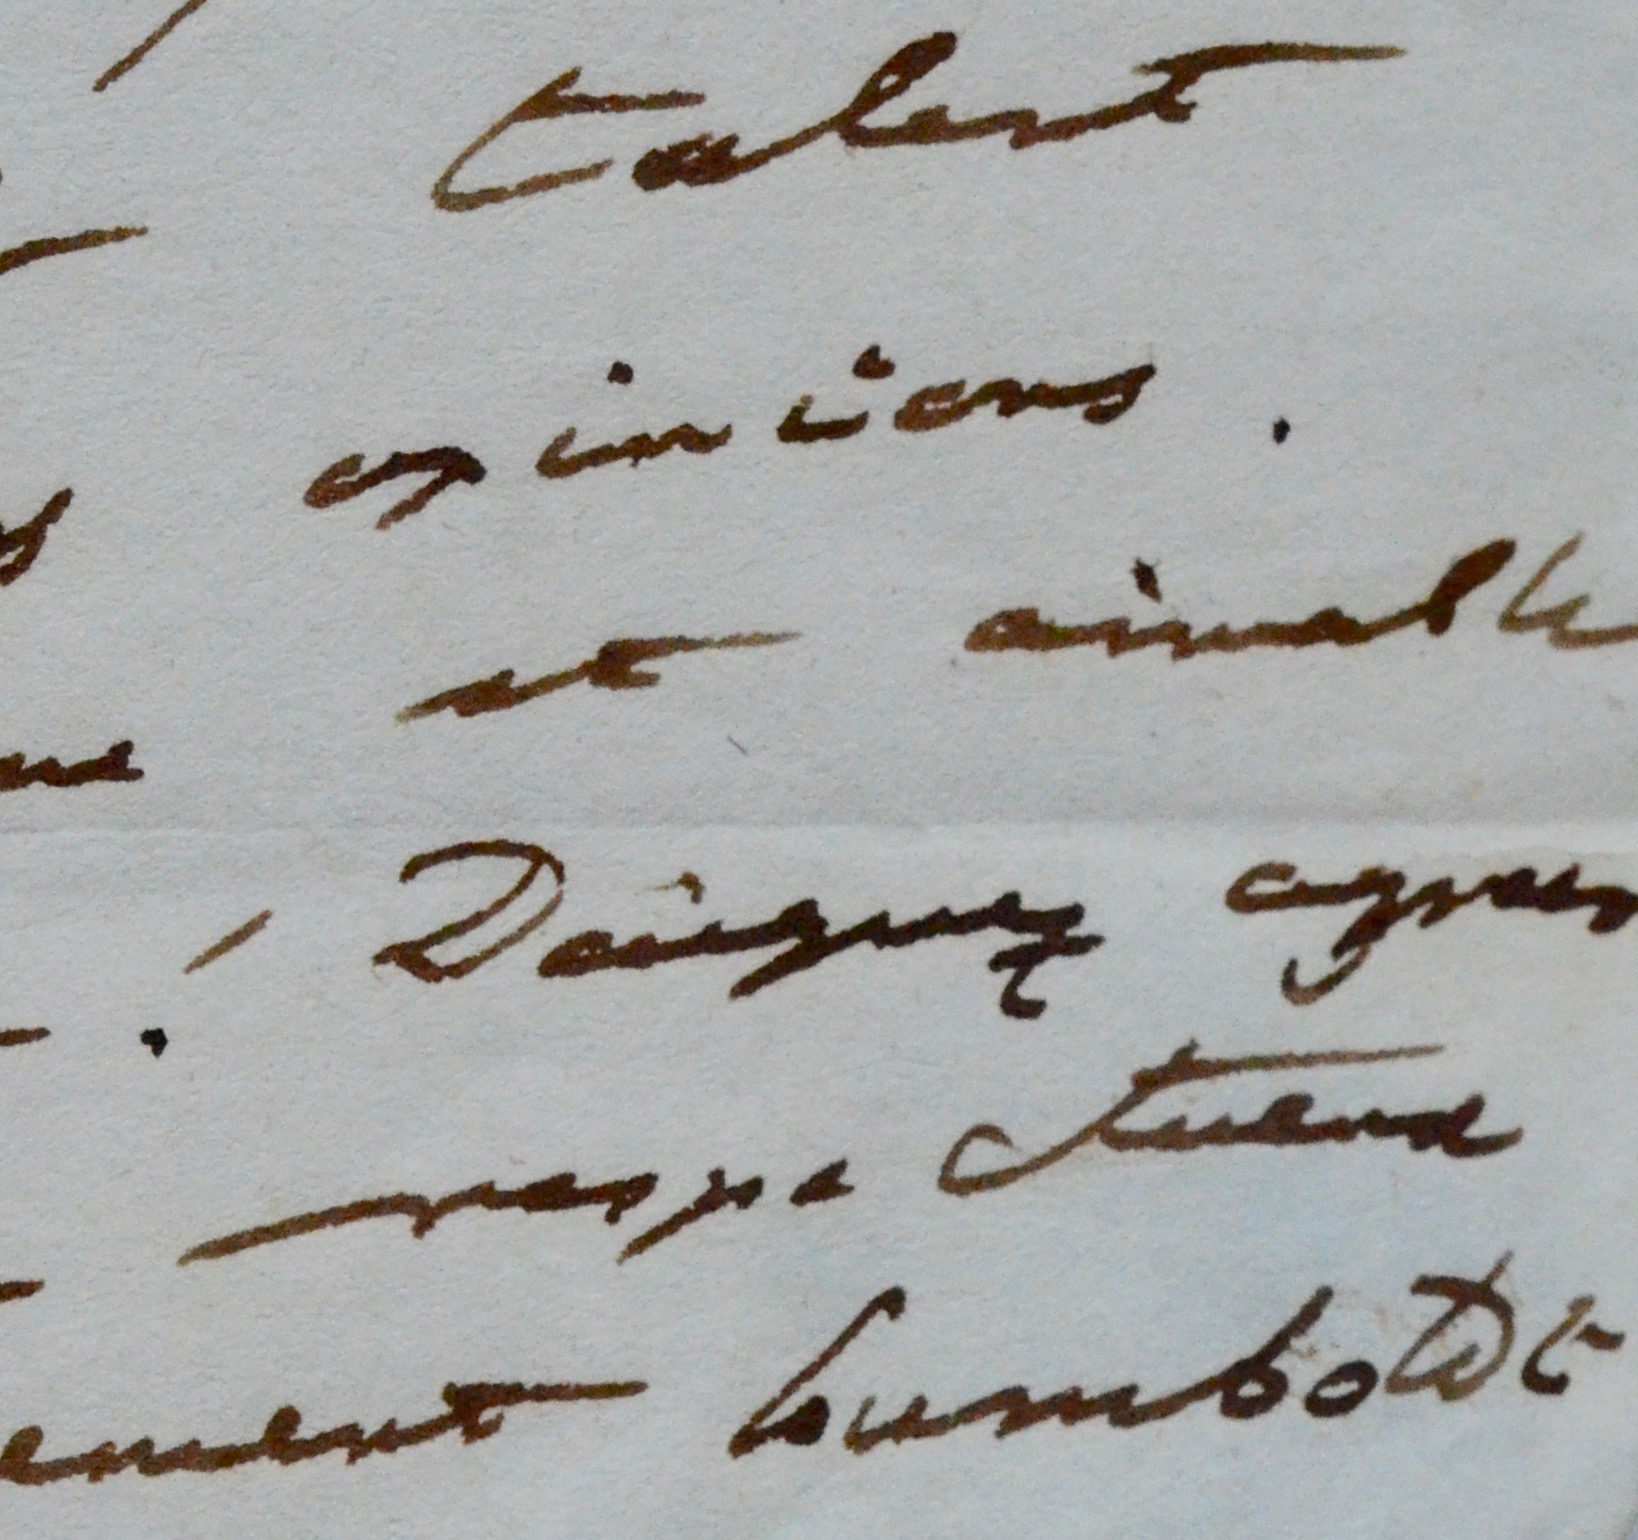 talent
opinions.
et aimable
. Daignez agréer
respectueux
ement Humboldt